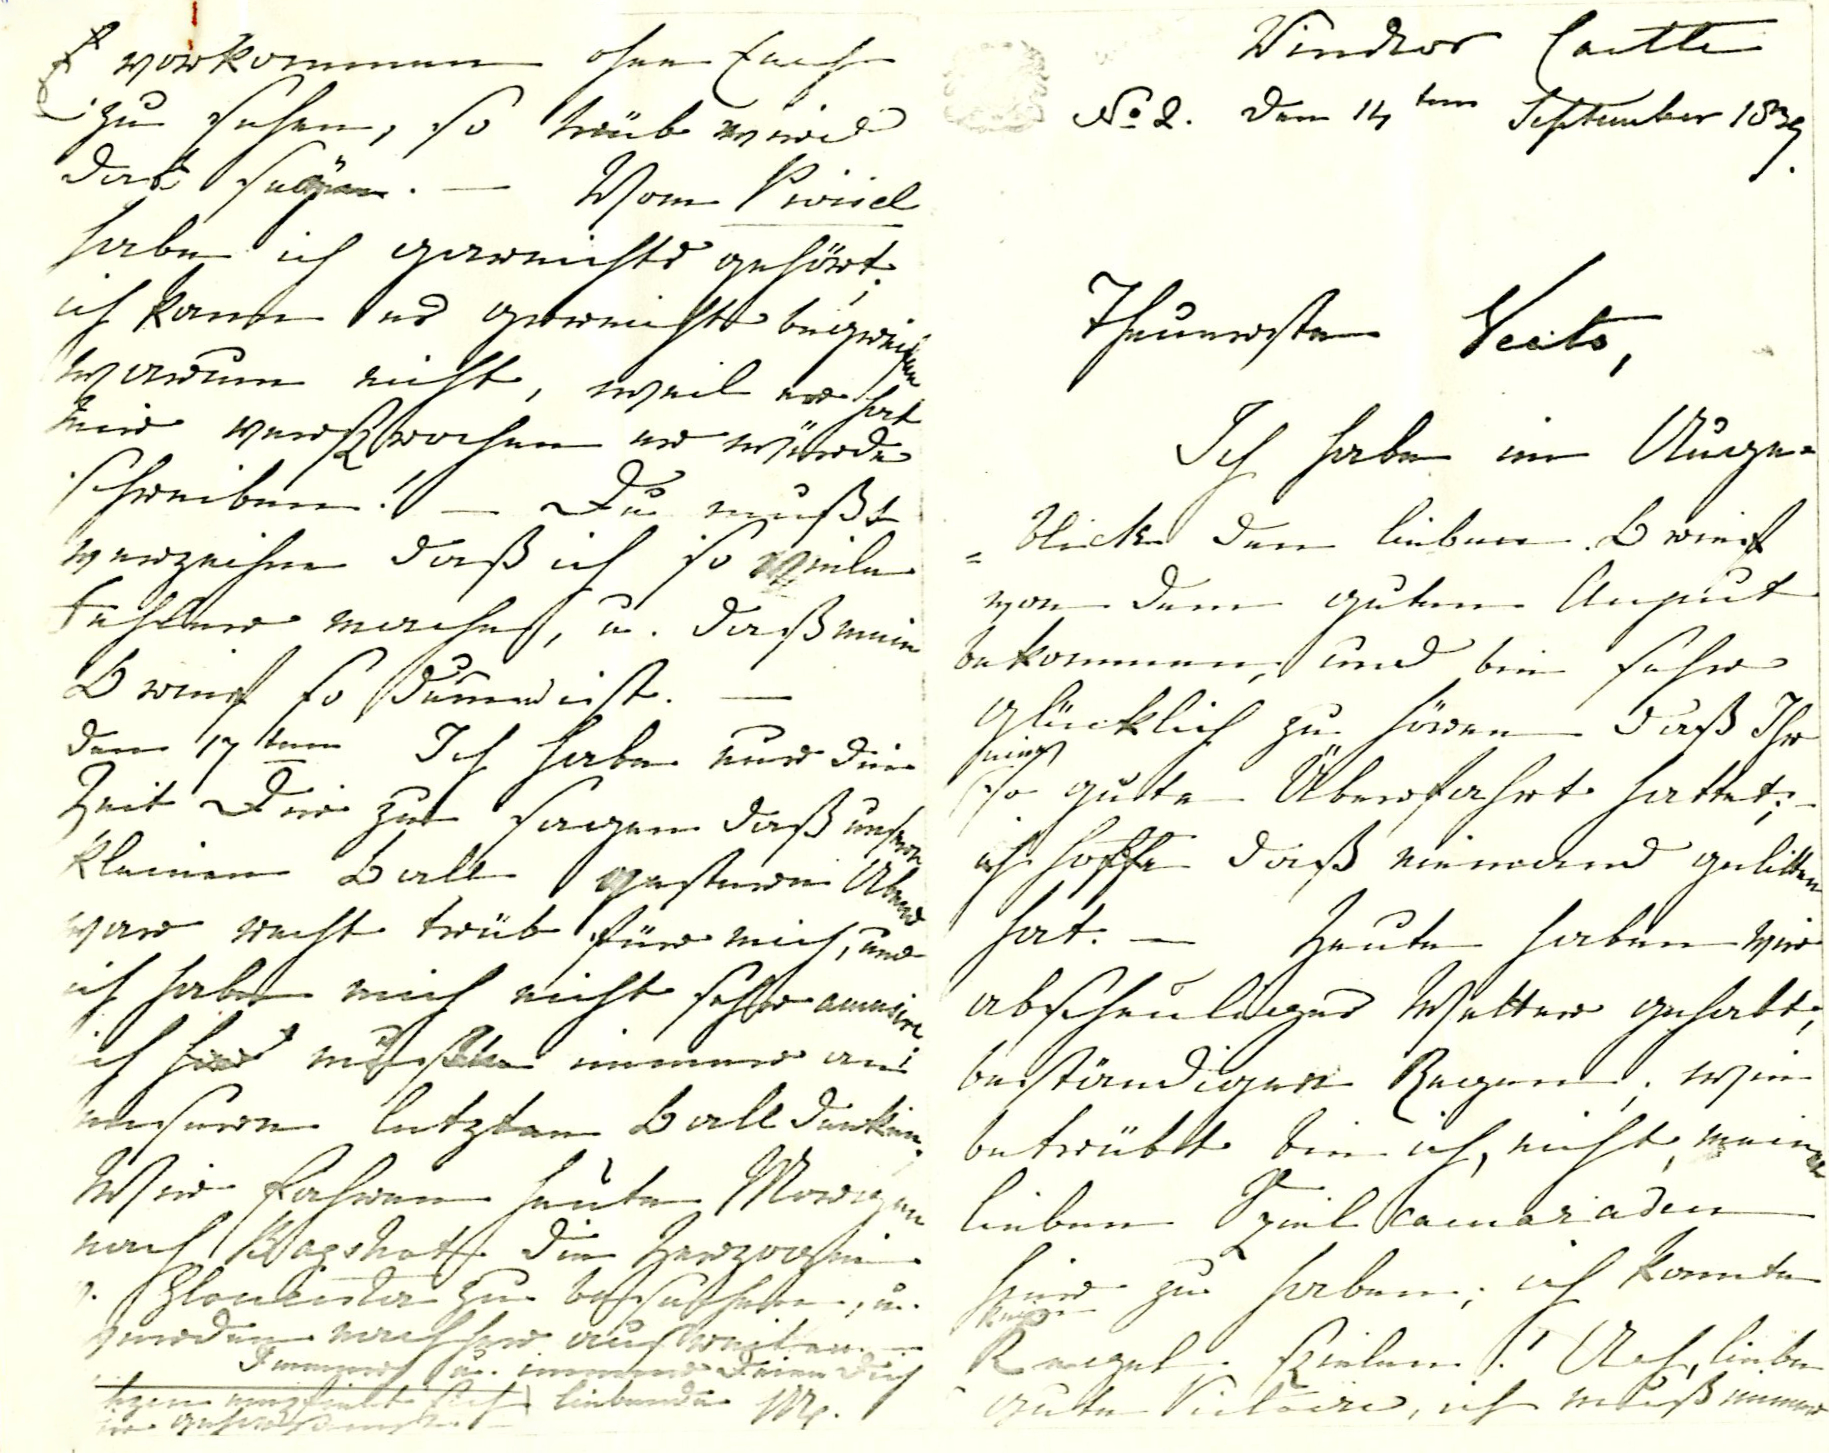 Windsor Castle
No 2. den 14ten September 1839.
Theuerste Vecto,
Ich habe im Augen=
=blicke den lieben Brief
von dem guten August
bekommen, und bin sehr
glücklich zu hören daß Ihr
eine
so gute Überfahrt hattet;
ich hoffe daß niemand gelitten
hat. — Heute haben wir
abscheuliges Wetter gehabt,
beständigen Regen; wie
betrübt bin ich, nicht, meine
lieben Spielcamaraden
hier zu haben; ich konnte
keine
Kregel spielen! Ach, liebe
gute Victoire, ich muß immer
vorkommen ohne Euch
zu sehen, so trüb wird
das seyn. — Vom
habe ich garnichts gehört;
ich kann es garnicht begreifen
warum nicht, weil er hat
mir versprochen er würde
schreiben! — Du mußt
verzeihen daß ich so viele
Fehler mache, u. daß mein
Brief so dumm ist. —
den 17ten Ich habe nur die
Zeit Dir zu sagen daß unser
kleiner Ball gestern Abend
war recht trüb für mich, und
ich habe mich nicht sehr amusirt
ich mußte immer an
unseren letzten Ball denken.
Wir fahren heute Morgen
nach Bagshot die Herzogin
v. Gloucester zu besuchen, u.
werden nachher ausreiten. —
Immer u. immer Deine Dich
liebende